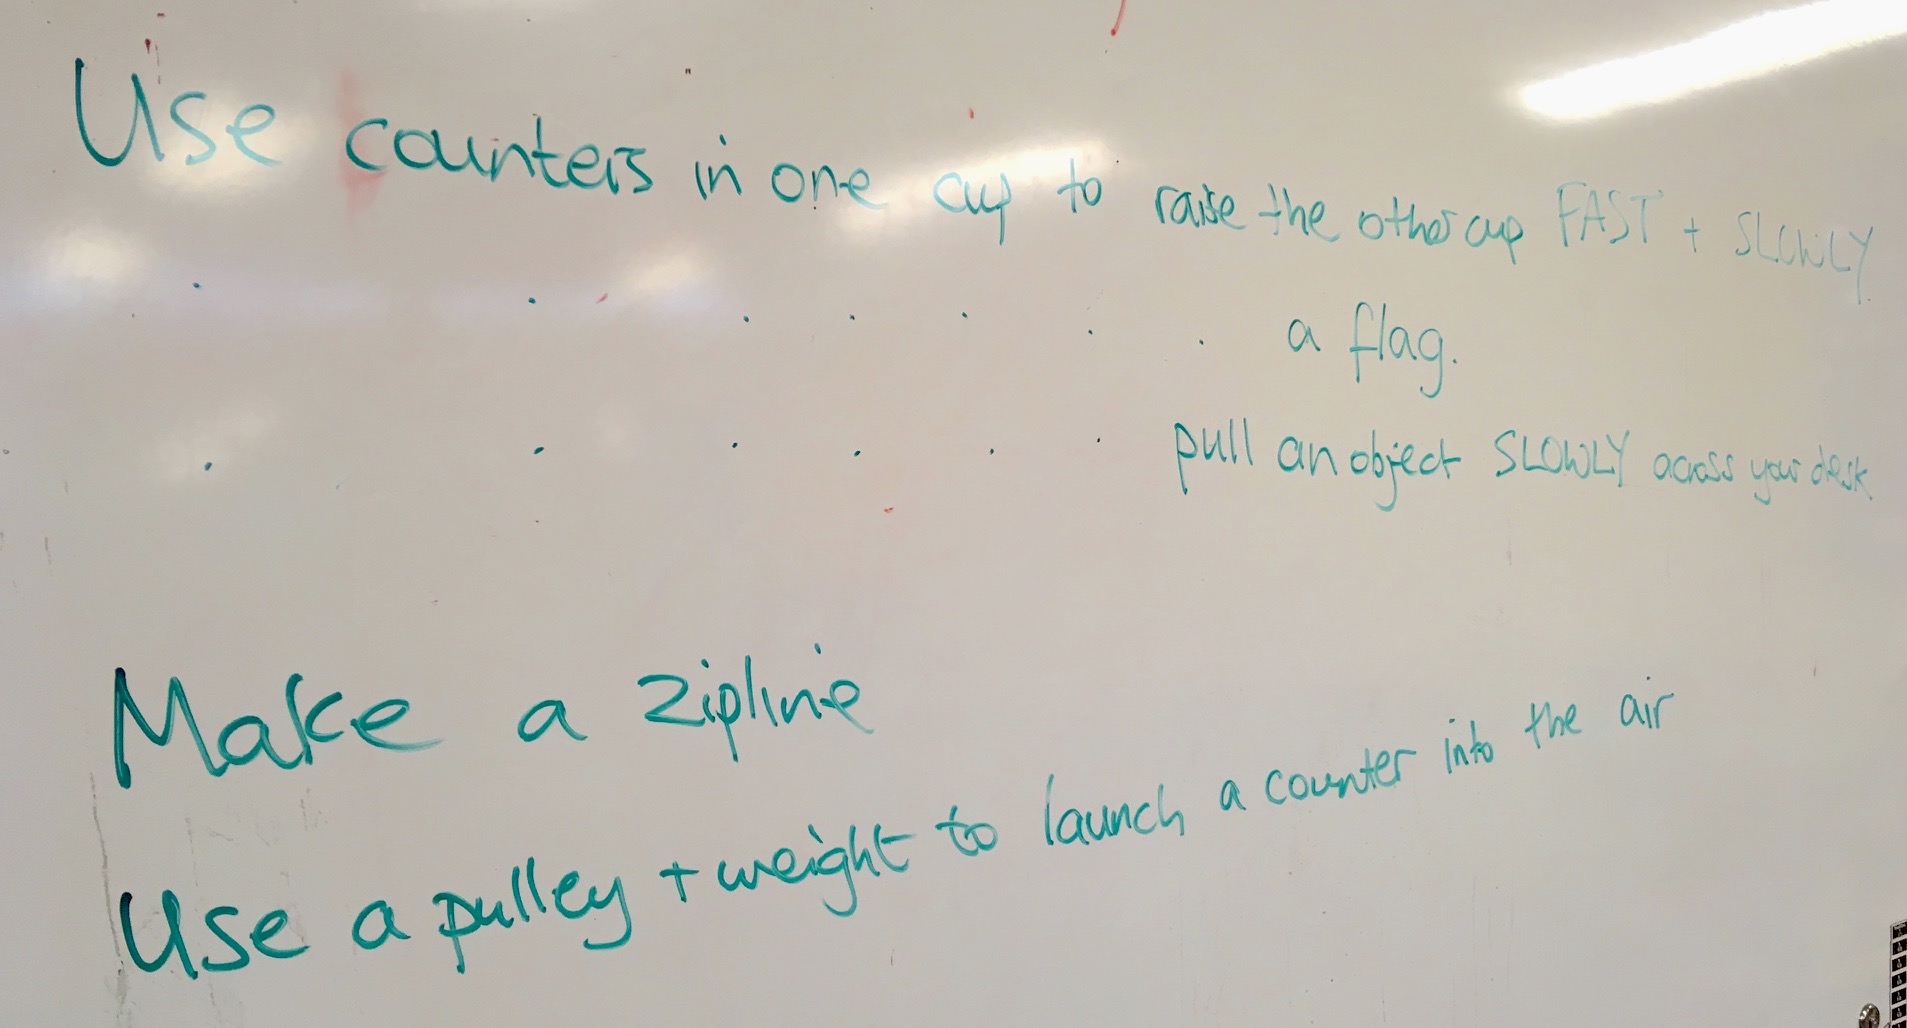 Use counters in one cup to raise the other cup FAST + SLOWLY
. . . . . . . a flag.
. . . . . . pull an object SLOWLY across your desk
Make a zipline
Use a pulley + weight to launch a counter into the air